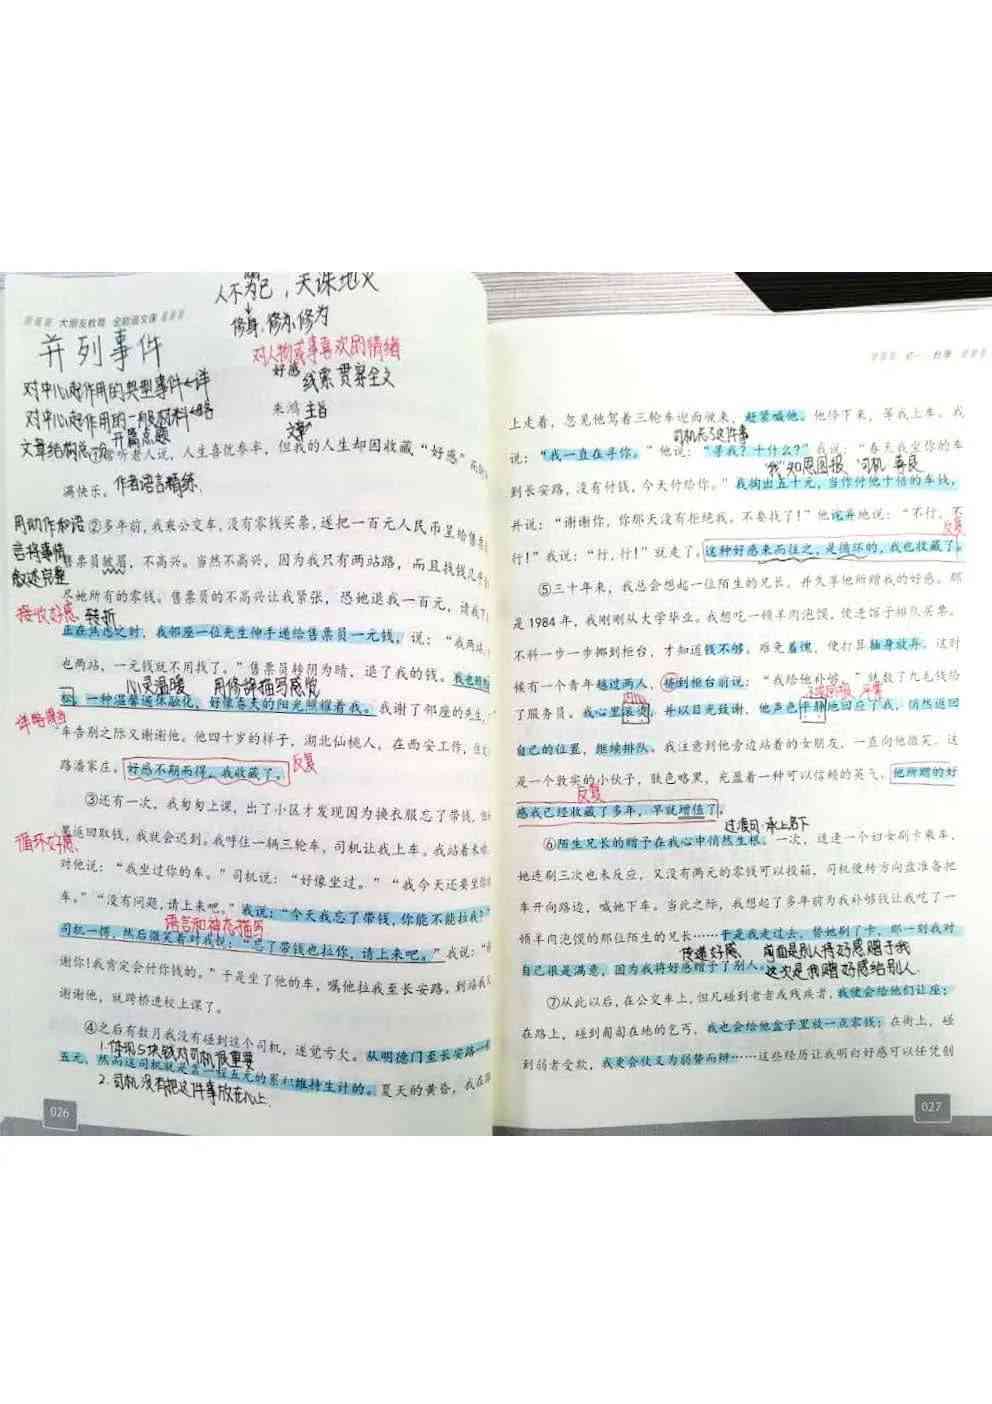 人不为己，天诛地灭
修身,修亦,修为
大朋友教育 全能语文课
并列事件
对人物或事喜欢的情绪
好感 线索 贯穿全文
对中心起作用的典型事件←详
对中心起作用的一般材料←略
朱鸿 主旨
开篇点题
文章结构
①常听老人说，人生喜忧参半，但我的人生却因收藏“好感”而
满快乐。作者语言精练.
用动作和语
言将事情
叙述完整
②多年前，我乘公交车，没有零钱买票，遂把一百元人民币呈给售票
售票员皱眉，不高兴。当然不高兴，因为我只有两站路，而且找钱几乎
尽她所有的零钱。售票员的不高兴让我紧张，恐她退我一百元，请我下
接收好感 转折
正在焦虑之时，我邻座一位先生伸手递给售票员一元钱，说：“我两站，
也两站，一元钱就不用找了。”售票员转阴为晴，退了我的钱。我也
心灵温暖 用修辞描写感觉
松，一种温馨通体融化，好像春天的阳光照耀着我。我谢了邻座的先生，
详略得当
车告别之际又谢谢他。他四十岁的样子，湖北仙桃人，在西安工作，住
路潘家庄。好感不期而得，我收藏了。
反复
③还有一次，我匆匆上课，出了小区才发现因为换衣服忘了带钱，但
果返回取钱，我就会迟到。我呼住一辆三轮车，司机让我上车。我站着未
循环好感
对他说：“我坐过你的车。”司机说：“好像坐过。”“我今天还要坐你
车。”“没有问题，请上来吧。”我说：“今天我忘了带钱，你能不能拉我？”
语言和神态描写
司机一愣，然后微笑着对我说：“忘了带钱也拉你，请上来吧。”我说：“
谢你！我肯定会付你钱的。”于是坐了他的车，嘱他拉我至长安路。到站我
谢谢他，就跨桥进校上课了。
④之后有数月我没有碰到这个司机，遂觉亏欠。从明德门至长安路一
1.体现5块钱对司机很重要
五元，然而这司机就是靠一程五元的累积维持生计的。夏天的黄昏，我在
2.司机没有把这件事放在心上.
026
初一·自尊
上走着，忽见他驾着三轮车迎面驶来，赶紧喊他。他停下来，等我上车。我
司机忘了这件事
说：“我一直在寻你。”他说：“寻我？干什么？”我说：“春天我坐你的车
“我”知恩图报 “司机”善良
到长安路，没有付钱，今天付给你。”我掏出五十元，当作付他十倍的车钱，
并说：“谢谢你，你那天没有拒绝我。不要找了！”他诧异地说：“不行，不
反复
行！”我说：“行，行！”就走了。这种好感来而往之，是循环的，我也收藏了。
⑤三十年来，我总会想起一位陌生的兄长，并久享他所赠我的好感。那
是1984年，我刚刚从大学毕业。我想吃一顿羊肉泡馍，便进馆子排队买票。
不料一步一步挪到柜台，才知道钱不够。难免羞愧，便打算抽身放弃。这时
候有一个青年越过两人，挤到柜台前说：“我给他补够。”就数了九毛钱给
了服务员。我心里滚烫，并以目光致谢，他声色平静地回应了我，悄然返回
自己的位置，继续排队。我注意到他旁边站着的女朋友，一直向他微笑。这
是一个敦实的小伙子，肤色略黑，充盈着一种可以信赖的英气。他所赠的好
反复
感我已经收藏了多年，早就增值了。
过渡句:承上启下
⑥陌生兄长的赠予在我心中悄然生根。一次，适逢一个妇女刷卡乘车，
她连刷三次也未反应，又没有两元的零钱可以投箱，司机便转方向盘准备把
车开向路边，喊她下车。当此之际，我想起了多年前为我补够钱让我吃了一
顿羊肉泡馍的那位陌生的兄长……于是我走过去，替她刷了卡，那一刻我对
传递好感 前面是别人将好感赠于我
自己很是满意，因为我将好感赠予了别人。这次是我赠好感给别人.
⑦从此以后，在公交车上，但凡碰到老者或残疾者，我便会给他们让座；
在路上，碰到匍匐在地的乞丐，我也会给他盒子里放一点零钱；在街上，碰
到弱者受欺，我更会仗义为弱势而辩……这些经历让我明白好感可以任凭创
027